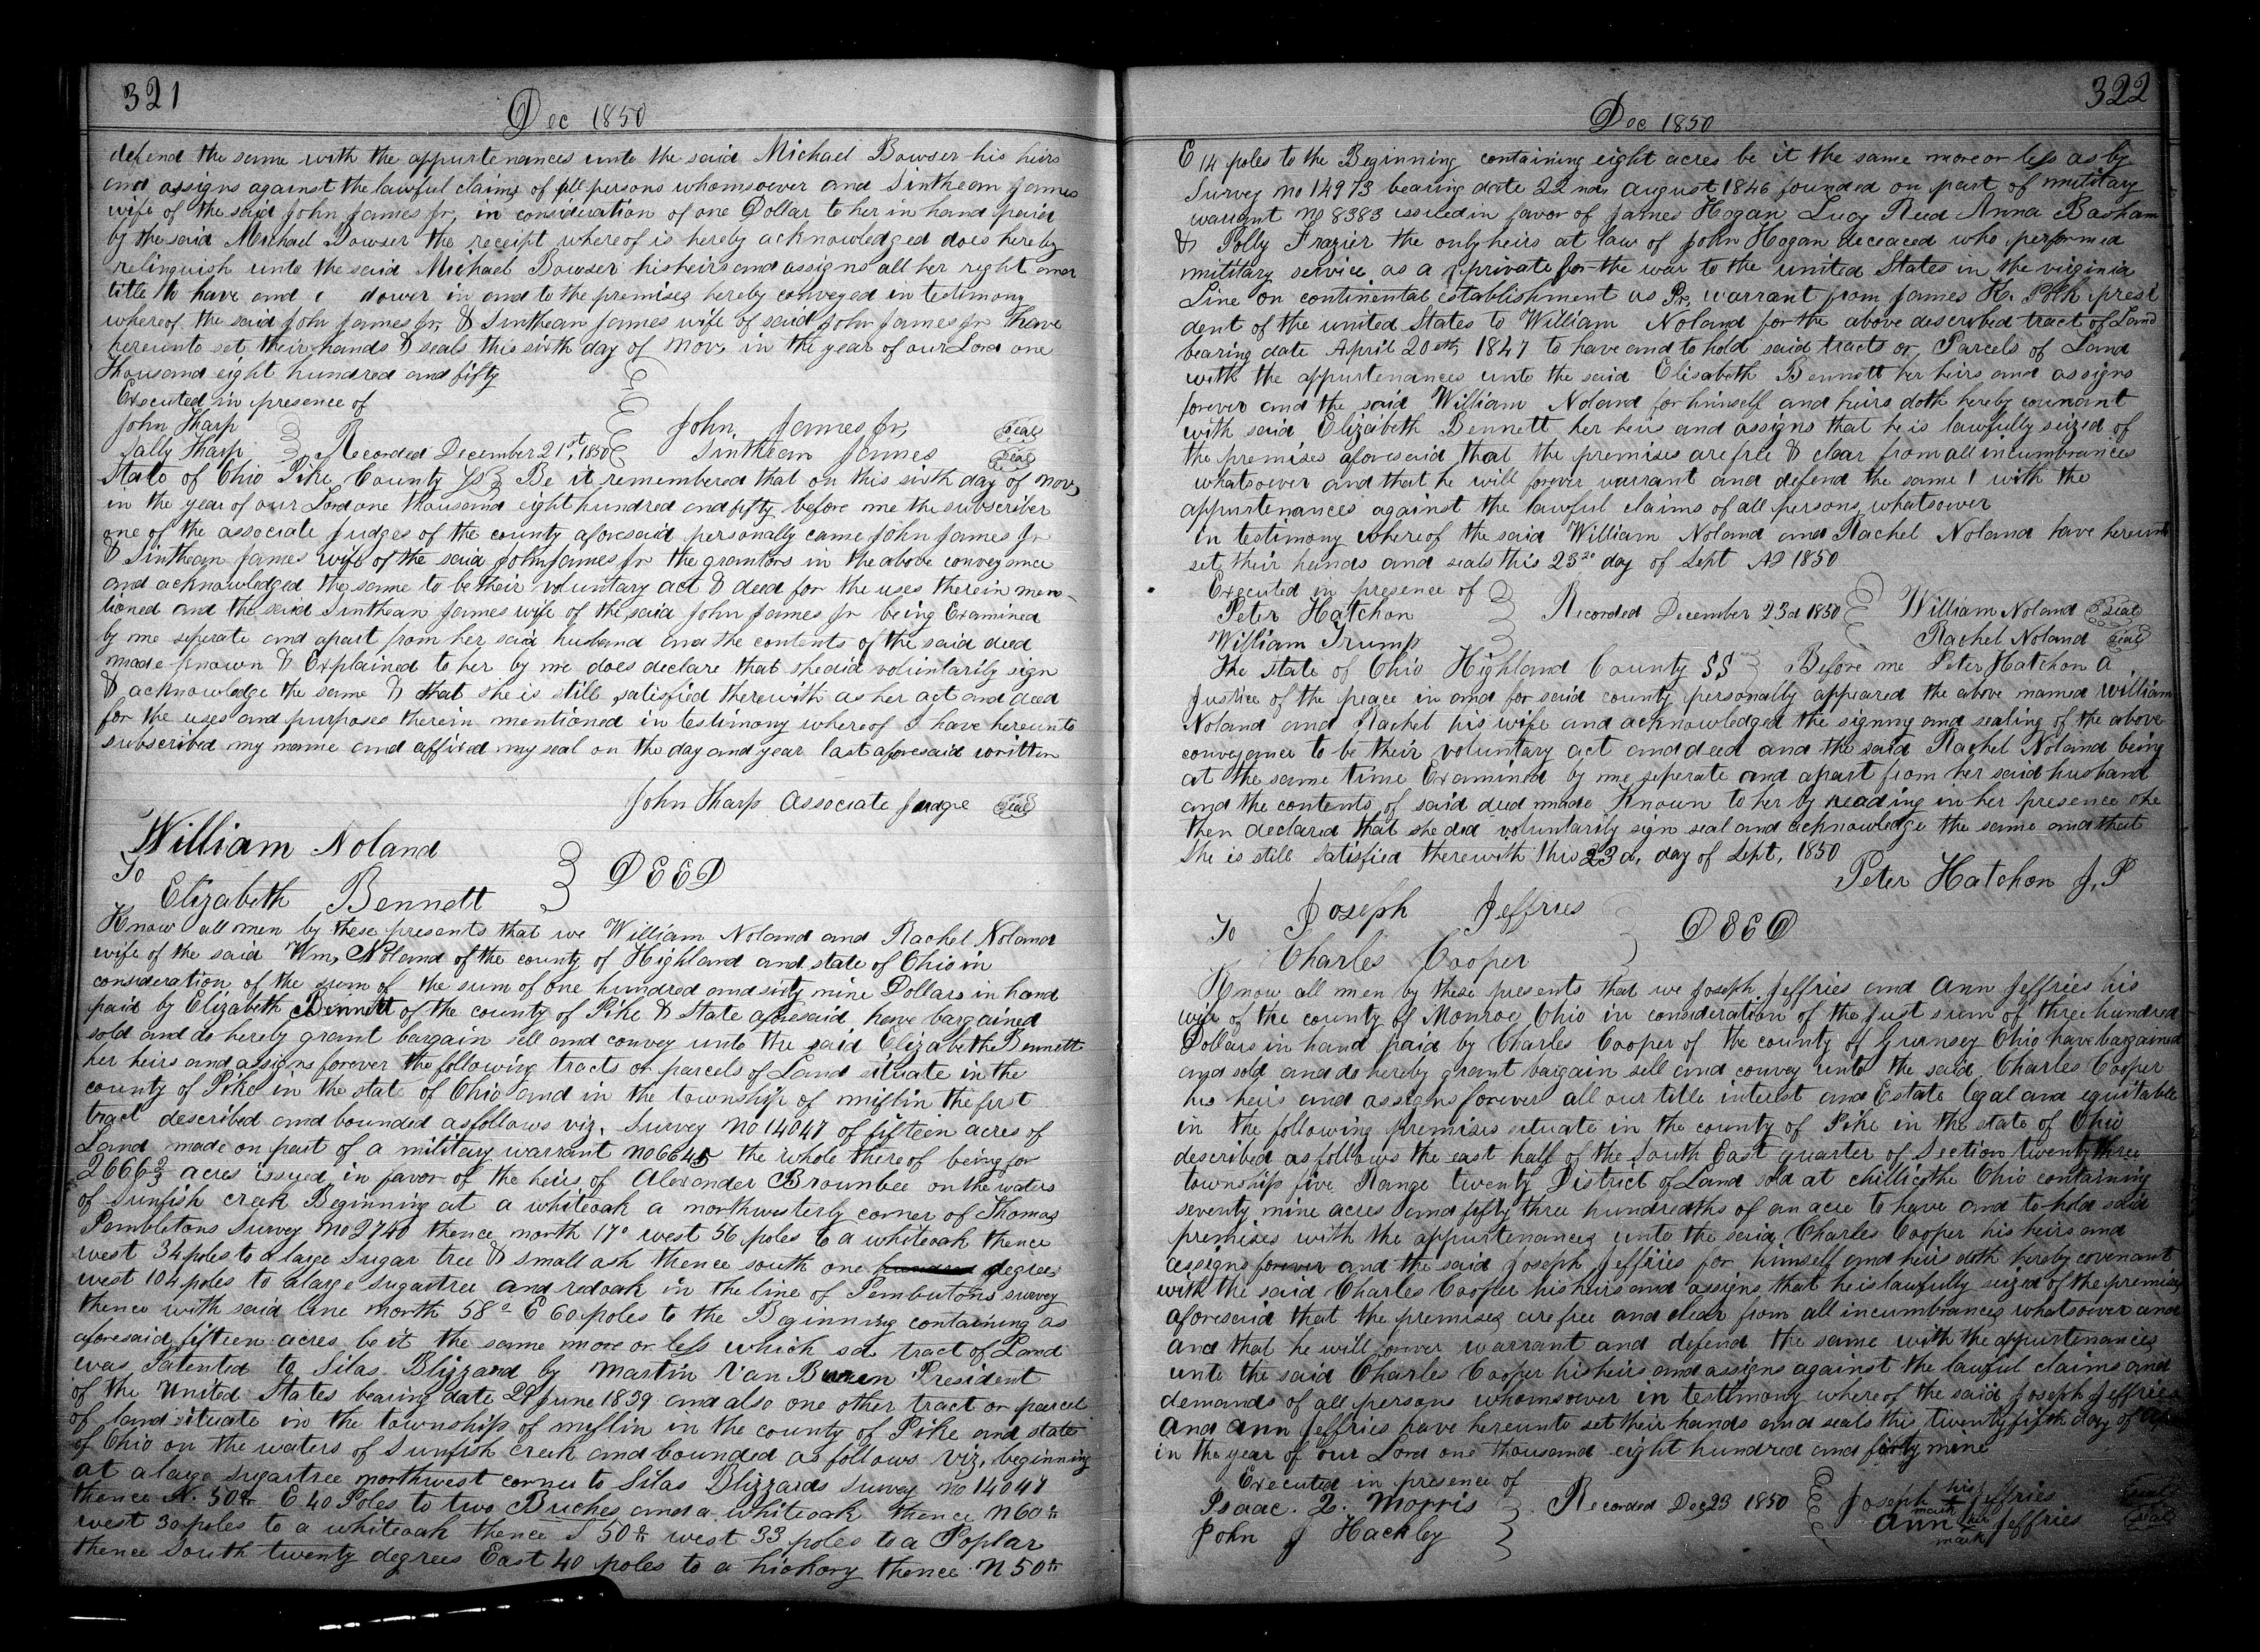 321
Dec 1850
defend the same with the appurtenances unto the said Michael Bowser his heirs
and assigns against the lawful claims of all persons whomsoever and Sinthean James
wife of the said John James Jr, in consideration of one Dollar to her in hand paid
by the said Michael Bowser the receipt whereof is hereby acknowledged does hereby
relinquish unto the said Michael Bowser his heirs and assigns all her right and
title to have and dower in and to the premises hereby conveyed in testimony
whereof the said John James Jr, & Sinthean James wife of said John James Jr have
hereunto set their hands & seals this sixth day of Nov, in the year of our Lord one
Thousand eight hundred and fifty
Executed in presence of
John Sharp
John James Jr, Seal
Sally Sharp Recorded December 21st, 1850 Sinthean James Seal
State of Ohio Pike County SS Be it remembered that on this sixth day of Nov,
in the year of our Lord one thousand eight hundred and fifty before me the subscriber
one of the associate judges of the county aforesaid personally came John James Jr
& Sinthean James wife of the said John James Jr the grantors in the above conveyance
and acknowledged the same to be their voluntary act & deed for the uses therein men-
tioned and the said Sinthean James wife of the said John James Jr being Examined
by me seperate and apart from her said husband and the contents of the said deed
made known & Explained to her by me does declare that she did voluntarily sign
& acknowledge the same & that she is still satisfied therewith as her act and deed
for the uses and purposes therein mentioned in testimony whereof I have hereunto
subscribed my name and affixed my seal on the day and year last aforesaid written
John Sharp Associate Judge Seal
William Noland
To DEED
Elizabeth Bennett
Know all men by these presents that we William Noland and Rachel Noland
wife of the said Wm, Noland of the county of Highland and state of Ohio in
consideration of the sum of the sum of one hundred and sixty nine Dollars in hand
paid by Elizabeth Bennett of the county of Pike & State aforesaid have bargained
sold and do hereby grant bargain sell and convey unto the said Elizabeth Bennett
her heirs and assigns forever the following tracts or parcels of Land situate in the
county of Pike in the state of Ohio and in the township of Mifflin the first
tract described and bounded as follows viz, Survey no 14047 of fifteen acres of
Land made on part of a military warrant no 6645 the whole thereof being for
2666 2/3 acres issued in favor of the heirs of Alexander Brounbee on the waters
of Sunfish creek Beginning at a whiteoak a northwesterly corner of Thomas
Pembletons Survey no 2740 thence north 17° west 56 poles to a whiteoak thence
west 34 poles to a large Sugar tree & small ash thence south one hundred degrees
west 104 poles to a large sugartree and redoak in the line of Pembutons survey
thence with said line north 58° E 60 poles to the Beginning containing as
aforesaid fifteen acres be it the same more or less which sd tract of Land
was Patented to Silas Blizzard by Martin Van Buren President
of the United States bearing date 29 June 1839 and also one other tract or parcel
of land situate in the township of mifflin in the county of Pike and state
of Ohio on the waters of Sunfish creek and bounded as follows viz, beginning
at a large sugartree northwest corner to Silas Blizzards Survey no 14047
thence N. 50th E 40 Poles to two Buches and a whiteoak thence N 60th
west 30 poles to a whiteoak thence S 50th west 33 poles to a Poplar
thence South twenty degrees East 40 poles to a hickory thence N 50th
322
Dec 1850
E 14 poles to the Beginning containing eight acres be it the same more or less as by
Survey no 14973 bearing date 22nd, August 1846 founded on part of military
warrant no 8383 issued in favor of James Hogan Lucy Reed Anna Basham
& Polly Frazier the only heirs at law of John Hogan deceaced who performed
military service as a private for the war to the united States in the virginia
Line on continental establishment as Pr, warrant from James K. Polk presi
dent of the united States to William Noland for the above described tract of Land
bearing date April 20th, 1847 to have and to hold said tracts or Parcels of Land
with the appurtenances unto the said Elisabeth Bennett her heirs and assigns
forever and the said William Noland for himself and heirs doth hereby covenant
with said Elizabeth Bennett her heirs and assigns that he is lawfully seized of
the premises aforesaid that the premises are free & clear from all incumbrances
whatsoever and that he will forever warrant and defend the same with the
appurtenances against the lawful claims of all persons whatsover
in testimony whereof the said William Noland and Rachel Noland have hereunto
set their hands and seals this 23rd day of Sept AD 1850
Executed in presence of
Peter Hatchon Recorded December 23d 1850 William Noland Seal
William Trump Rachel Noland Seal
The State of Ohio Highland County SS Before me Peter Hatchon a
Justice of the peace in and for said county personally appeared the above named William
Noland and Rachel his wife and acknowledged the signing and sealing of the above
conveyance to be their voluntary act and deed and the said Rachel Noland being
at the same time Examined by me, seperate and apart from her said husband
and the contents of said deed made Known to her by reading in her presence she
then declared that she did voluntarily sign seal and acknowledge the same and that
she is still satisfied therewith this 23d, day of Sept, 1850
Peter Hatchon J, P
Joseph Jeffries
To DEED
Charles Cooper
Know all men by these presents that we Joseph Jeffries and Ann Jeffries his
wife of the county of Monroe Ohio in consideration of the just sum of three hundred
Dollars in hand paid by Charles Cooper of the county of Gurnsey Ohio have bargained
and sold and do hereby grant bargain sell and convey unto the said Charles Cooper
his heirs and assigns forever all our title interest and Estate legal and equitable
in the following premises situate in the county of Pike in the state of Ohio
described as follows the east half of the South East quarter of Section twenty three
township five Range twenty District of Land sold at chillicothe Ohio containing
seventy nine acres and fifty three hundredths of an acre to have and to hold said
premises with the appurtenances unto the said Charles Cooper his heirs and
assigns forever and the said Joseph Jeffries for himself and heirs doth hereby covenant
with the said Charles Cooper his heirs and assigns that he is lawfully seized of the premises
aforesaid that the premises are free and clear from all incumbrances whatsover and
and that he will forever warrant and defend the same with the appurtenances
unto the said Charles Cooper his heirs and assigns against the lawful claims and
demands of all persons whomsover in testimony whereof the said Joseph Jeffries
and Ann Jeffries have hereunto set their hands and seals this twenty fifth day of
in the year of our Lord one thousand eight hundred and forty nine
Executed in presence of
Isaac. Z. Morris Recorded Dec 23 1850 Joseph his mark Jeffries Seal
John J Hackley Ann her mark Jeffries Seal